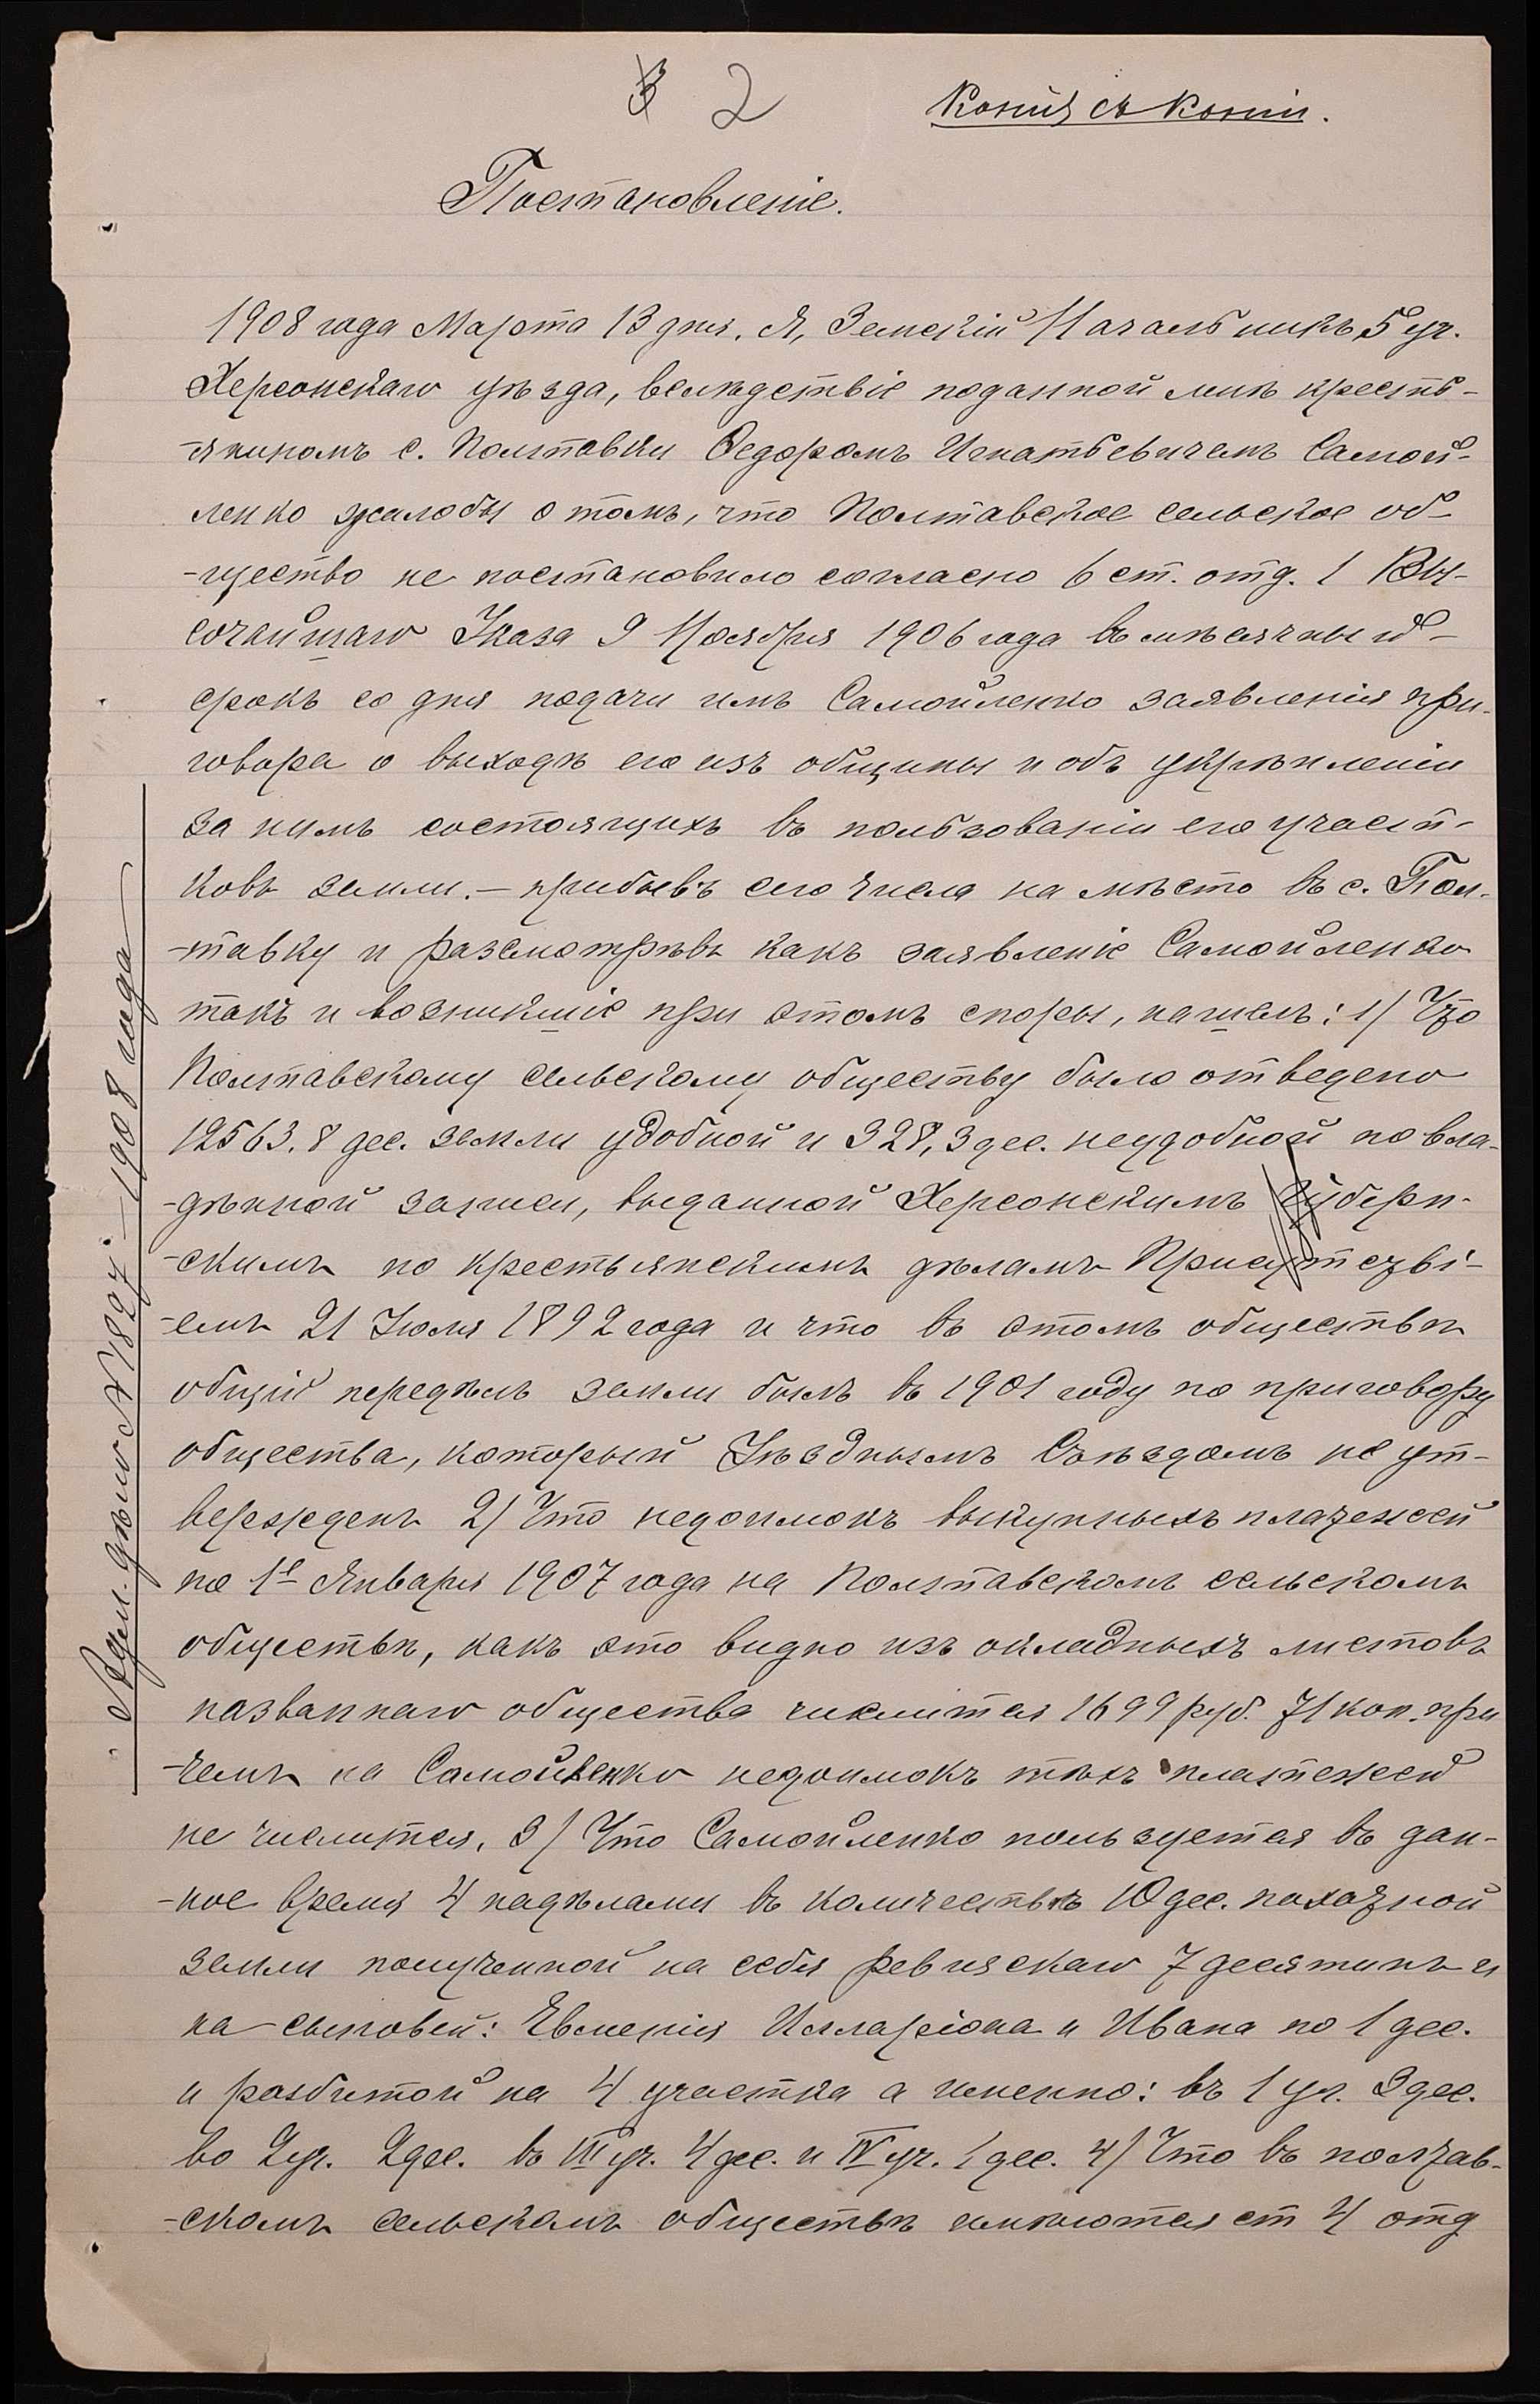 3 2
Копія съ копіи.
Постановленіе.
1908 года Марта 13 дня. Я, Земскій Начальникъ 5 уч.
Херсонскаго уѣзда, вслѣдствіе поданной мнѣ кресть-
-яниномъ с. Полтавки Ѳедоромъ Игнатьевичемъ Самой-
ленко жалобы о томъ, что Полтавское сельское об-
-щество не постановило согласно 6 ст. отд. 1 Вы-
сочайшаго Указа 9 Ноября 1906 года въ мѣсячный -
срокъ со дня подачи имъ Самойленко заявленія при-
говора о выходѣ его изъ общины и объ укрѣпленіи
за нимъ состоящихъ въ пользованіи его участ-
ковъ земли. – прибывъ сего числа на мѣсто въ с. Пол-
-тавку и разсмотрѣвъ какъ заявленіе Самойленко
такъ и возникшіе при этомъ споры, нашелъ: 1) Что
Полтавскому сельскому обществу было отведено
12563.8 дес. земли удобной и 328,3 дес. неудобной по вла-
-дѣнной записи, выданной Херсонскимъ Губерн-
-скимъ по крестьянскимъ дѣламъ Присутстві-
-емъ 21 Іюля 1892 года и что въ этомъ обществѣ
общій передѣлъ земли былъ въ 1901 году по приговору
общества, который Уѣзднымъ Съѣздомъ не ут-
вержденъ 2) Что недоимокъ выкупныхъ платежей
по 1е Января 1907 года на Полтавскомъ сельскомъ
обществѣ, какъ это видно изъ окладныхъ листовъ
названнаго общества числится 1699 руб. 71 коп. при
-чемъ на Самойленко недоимокъ тѣхъ платежей
не числится, 3) Что Самойленко пользуется въ дан-
-ное время 4 надѣлами въ количествѣ 10 дес. пахатной
земли полученной на себя ревизскаго 7 десятинъ и
на сыновей: Евменія Илларіона и Ивана по 1 дес.
и разбитой на 4 участка а именно: въ 1 уч. 3 дес.
во 2 уч. 2 дес. въ III уч. 4 дес. и IV уч. 1 дес. 4) Что въ полтав-
-скомъ сельскомъ обществѣ имѣются ст 4 отд
дѣло № 1827 – 1908 года